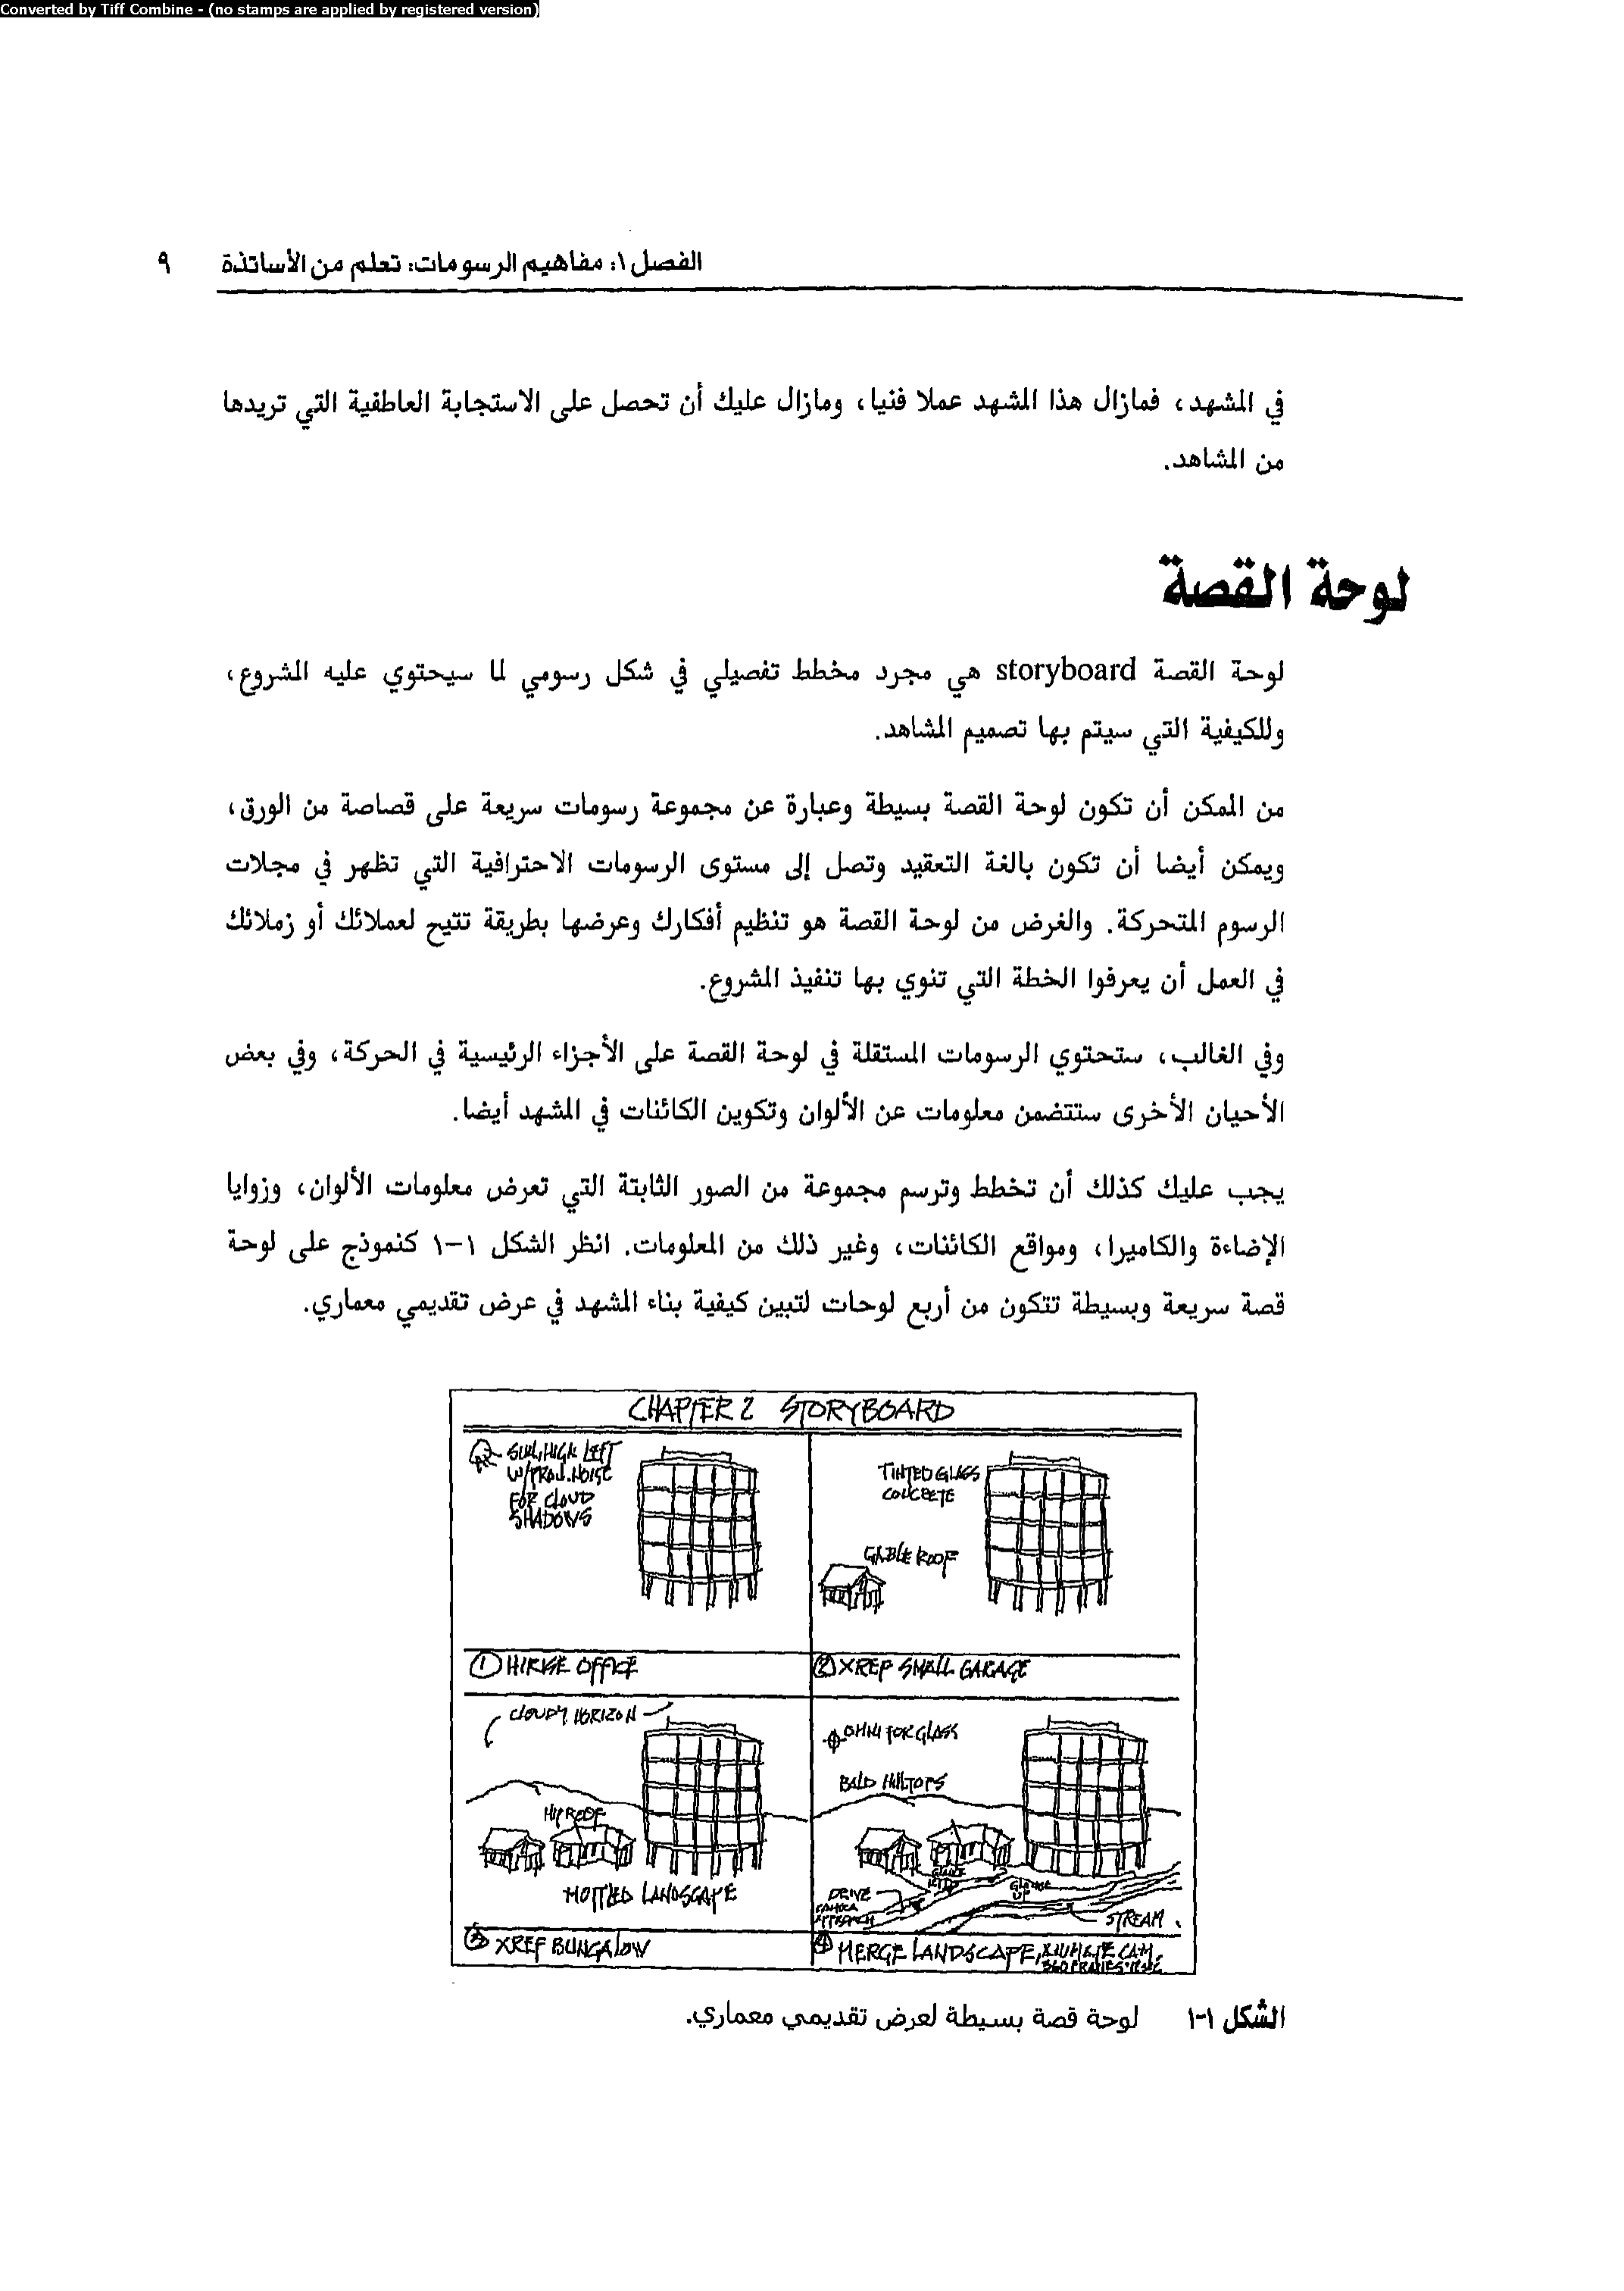 Converted by Tiff Combine - (no stamps are applied by registered version)
الفصل ١: مفاهيم الرسومات: تعلم من الأساتذة ٩
في المشهد، فمازال هذا المشهد عملا فنيا، ومازال عليك أن تحصل على الاستجابة العاطفية التي تريدها
من المشاهد.
لوحة القصة
لوحة القصة storyboard هي مجرد مخطط تفصيلي في شكل رسومي لما سيحتوي عليه المشروع،
وللكيفية التي سيتم بها تصميم المشاهد.
من الممكن أن تكون لوحة القصة بسيطة وعبارة عن مجموعة رسومات سريعة على قصاصة من الورق،
ويمكن أيضا أن تكون بالغة التعقيد وتصل إلى مستوى الرسومات الاحترافية التي تظهر في مجلات
الرسوم المتحركة. والغرض من لوحة القصة هو تنظيم أفكارك وعرضها بطريقة تتيح لعملائك أو زملائك
في العمل أن يعرفوا الخطة التي تنوي بها تنفيذ المشروع.
وفي الغالب، ستحتوي الرسومات المستقلة في لوحة القصة على الأجزاء الرئيسية في الحركة، وفي بعض
الأحيان الأخرى ستتضمن معلومات عن الألوان وتكوين الكائنات في المشهد أيضا.
يجب عليك كذلك أن تخطط وترسم مجموعة من الصور الثابتة التي تعرض معلومات الألوان، وزوايا
الإضاءة والكاميرا، ومواقع الكائنات، وغير ذلك من المعلومات. انظر الشكل ١-١ كنموذج على لوحة
قصة سريعة وبسيطة تتكون من أربع لوحات لتبين كيفية بناء المشهد في عرض تقديمي معماري.
CHAPTER 2 STORYBOARD
SUN, HIGH LEFT
NOISE
FOR CLOUD
SHADOWS
TINTED GLASS
CONCRETE
GABLE ROOF
1 HIRISE OFFICE
2 XREF SMALL GARAGE
CLOUDY HORIZON
HIP ROOF
MOTTLED LANDSCAPE
OMNI FOR GLASS
BALD HILLTOPS
DRIVE
STREAM
3 XREF BUNGALOW
4 MERGE LANDSCAPE, CAM.
الشكل ١-١ لوحة قصة بسيطة لعرض تقديمي معماري.